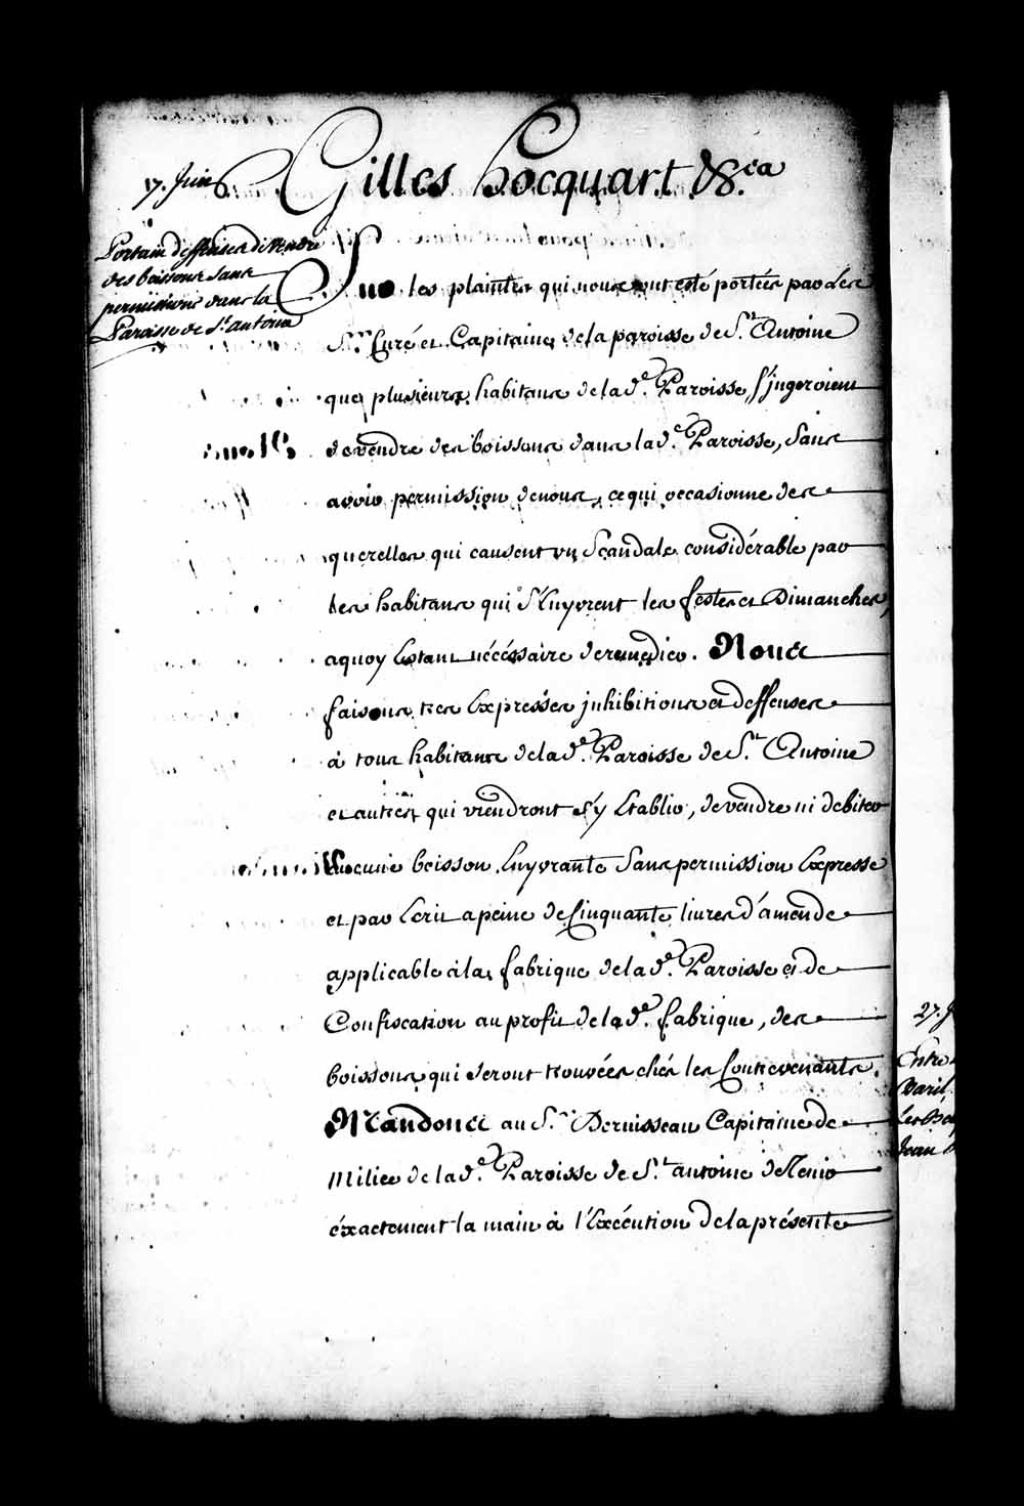 17. Juin
Gilles hocquart &c.ea
Portant deffenses de vendre
des boissons sans
permissions dans la
Paroisse de St. antoine
Sur les plaintes qui nous ont esté portées par Les
Srs. Curé et Capitaine de la paroisse de St. Antoine
que plusieurs habitans de lad.e Paroisse S'jngeroient
de vendre des boissons dans lad.e Paroisse, Sans
avoir permission de nous, ce qui occasionne des
querelles qui causent un Scandale considérable par
les habitans qui S'Enyvrent les festes et Dimanches,
aquoy Estant nécéssaire de remedier. Nous
faisons tres Expresses jnhibitions et deffenses
à tous habitans de lad.e Paroisse de St. Antoine
et autres qui viendront s'y Etablir, de vendre ni debiter
aucune boisson Enyvrante Sans permission Expresse
et par Ecrit a peine de Cinquante livres d'amende
applicable à la fabrique de lad.e Paroisse et de
Confiscation au profit de lad.e fabrique, des
boissons qui seront trouvées chés les Contrevenants.
Mandons au Sr. Dernisseau Capitaine de
Milice de lad.e Paroisse de St. antoine de Tenir
éxactement la main à l'Exécution de la présente
27. J
Entre
Baril
Jean